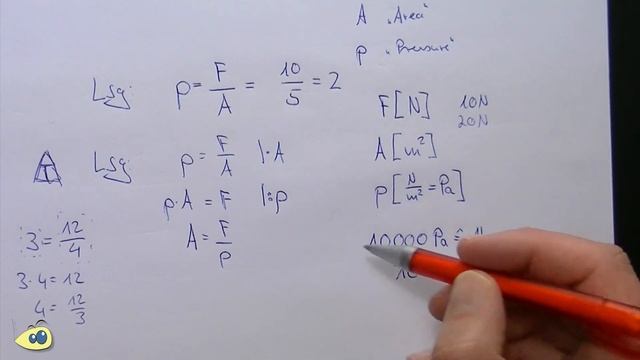 A "Area"
p "Pressure"
Lsg: p = F/A = 10/5 = 2
F [N] 10N
20N
A [m²]
Lsg: p = F/A |·A
p [N/m² = Pa]
p·A = F |:p
A = F/p
3 = 12/4
3·4 = 12
4 = 12/3
10000 Pa ≙